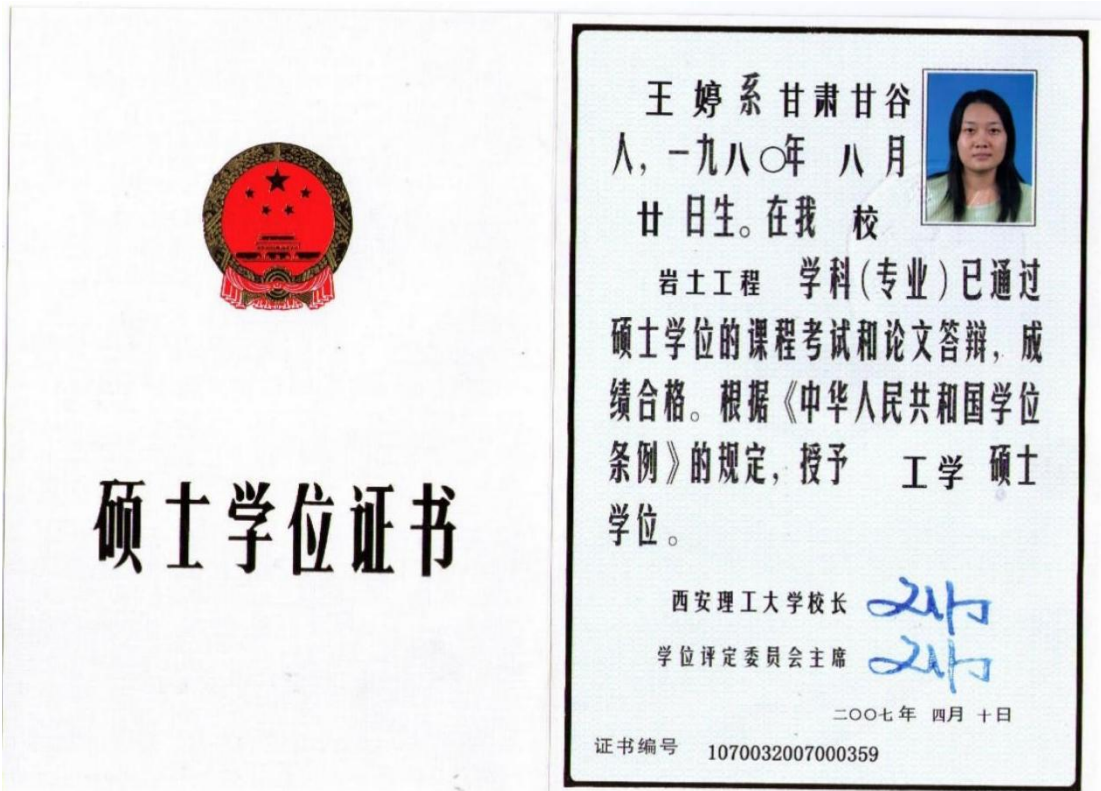 硕士学位证书
王婷系甘肃甘谷
人，一九八〇年 八月
廿日生。在我 校
岩土工程 学科（专业）已通过
硕士学位的课程考试和论文答辩，成
绩合格。根据《中华人民共和国学位
条例》的规定，授予 工学 硕士
学位。
西安理工大学校长
学位评定委员会主席
二〇〇七年 四月 十日
证书编号 1070032007000359